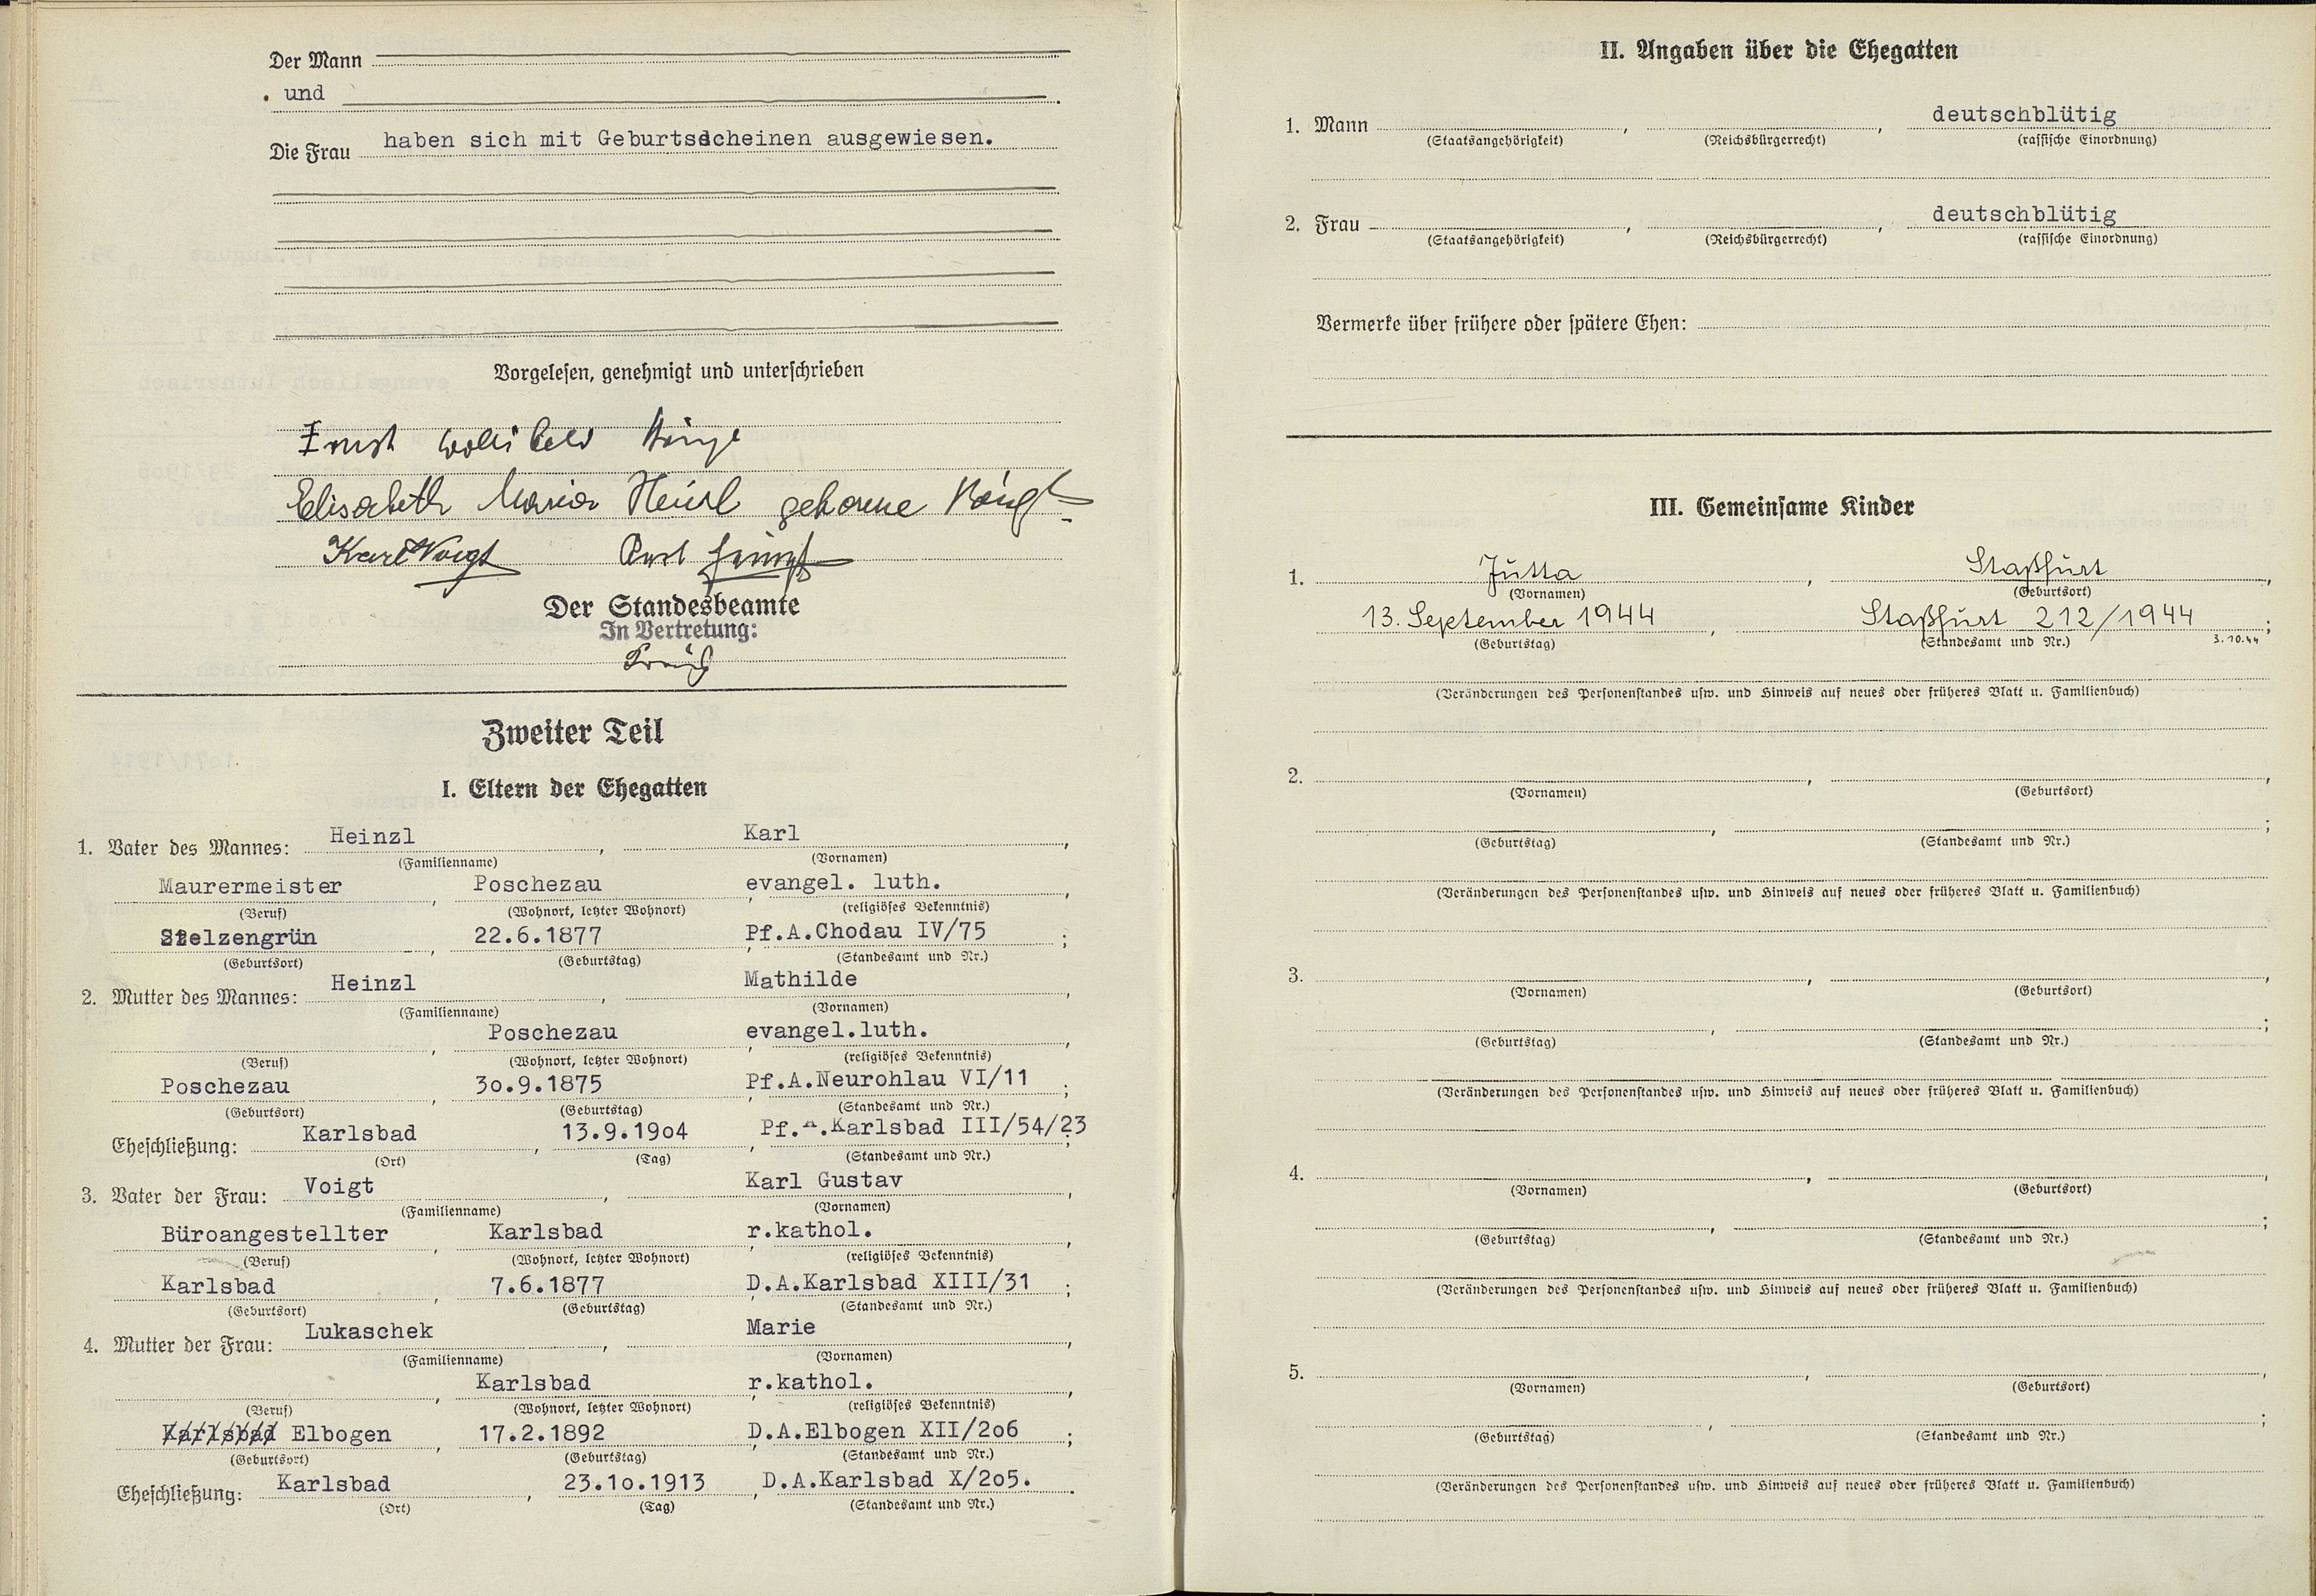 Der Mann
und
Die Frau haben sich mit Geburtsscheinen ausgewiesen.
Vorgelesen, genehmigt und unterschrieben
Ernst
Elisabeth Maria Heinzl geborene Voigt
Karl Voigt Karl
Der Standesbeamte
In Vertretung:
Zweiter Teil
I. Eltern der Ehegatten
1. Vater des Mannes: Heinzl, Karl,
(Familienname) (Vornamen)
Maurermeister, Poschezau, evangel. luth.,
(Beruf) (Wohnort, letzter Wohnort) (religiöses Bekenntnis)
Stelzengrün, 22.6.1877, Pf.A.Chodau IV/75;
(Geburtsort) (Geburtstag) (Standesamt und Nr.)
2. Mutter des Mannes: Heinzl, Mathilde,
(Familienname) (Vornamen)
, Poschezau, evangel.luth.,
(Beruf) (Wohnort, letzter Wohnort) (religiöses Bekenntnis)
Poschezau, 3o.9.1875, Pf.A.Neurohlau VI/11;
(Geburtsort) (Geburtstag) (Standesamt und Nr.)
Eheschließung: Karlsbad, 13.9.19o4, Pf.A.Karlsbad III/54/23;
(Ort) (Tag) (Standesamt und Nr.)
3. Vater der Frau: Voigt, Karl Gustav,
(Familienname) (Vornamen)
Büroangestellter, Karlsbad, r.kathol.,
(Beruf) (Wohnort, letzter Wohnort) (religiöses Bekenntnis)
Karlsbad, 7.6.1877, D.A.Karlsbad XIII/31;
(Geburtsort) (Geburtstag) (Standesamt und Nr.)
4. Mutter der Frau: Lukaschek, Marie,
(Familienname) (Vornamen)
, Karlsbad, r.kathol.,
(Beruf) (Wohnort, letzter Wohnort) (religiöses Bekenntnis)
Karlsbad Elbogen, 17.2.1892, D.A.Elbogen XII/2o6;
(Geburtsort) (Geburtstag) (Standesamt und Nr.)
Eheschließung: Karlsbad, 23.1o.1913, D.A.Karlsbad X/2o5.
(Ort) (Tag) (Standesamt und Nr.)
II. Angaben über die Ehegatten
1. Mann , , deutschblütig
(Staatsangehörigkeit) (Reichsbürgerrecht) (rassische Einordnung)
2. Frau , , deutschblütig
(Staatsangehörigkeit) (Reichsbürgerrecht) (rassische Einordnung)
Vermerke über frühere oder spätere Ehen:
III. Gemeinsame Kinder
1. Jutta, Staßfurt,
(Vornamen) (Geburtsort)
13. September 1944, Staßfurt 212/1944;
(Geburtstag) (Standesamt und Nr.) 3.10.44
(Veränderungen des Personenstandes usw. und Hinweis auf neues oder früheres Blatt u. Familienbuch)
2. , ,
(Vornamen) (Geburtsort)
, ;
(Geburtstag) (Standesamt und Nr.)
(Veränderungen des Personenstandes usw. und Hinweis auf neues oder früheres Blatt u. Familienbuch)
3. , ,
(Vornamen) (Geburtsort)
, ;
(Geburtstag) (Standesamt und Nr.)
(Veränderungen des Personenstandes usw. und Hinweis auf neues oder früheres Blatt u. Familienbuch)
4. , ,
(Vornamen) (Geburtsort)
, ;
(Geburtstag) (Standesamt und Nr.)
(Veränderungen des Personenstandes usw. und Hinweis auf neues oder früheres Blatt u. Familienbuch)
5. , ,
(Vornamen) (Geburtsort)
, ;
(Geburtstag) (Standesamt und Nr.)
(Veränderungen des Personenstandes usw. und Hinweis auf neues oder früheres Blatt u. Familienbuch)